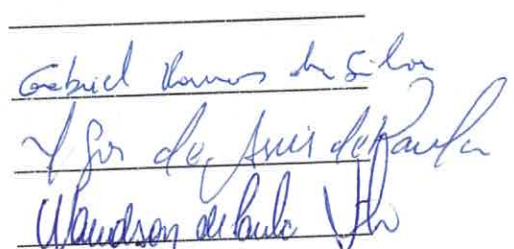 Gabriel Ramos da Silva
Igor de Assis de Paula
Wandson de Paula